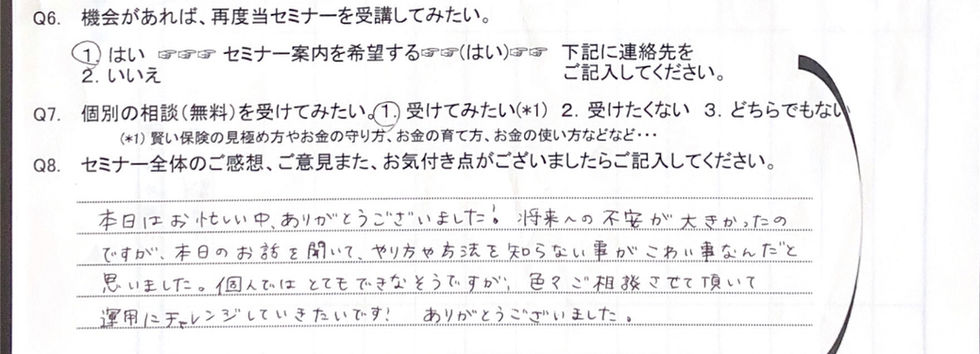 Q6. 機会があれば、再度当セミナーを受講してみたい。
1. はい ☞☞☞ セミナー案内を希望する☞☞(はい)☞☞ 下記に連絡先を
2. いいえ ご記入してください。
Q7. 個別の相談(無料)を受けてみたい。1. 受けてみたい(*1) 2. 受けたくない 3. どちらでもない
(*1) 賢い保険の見極め方やお金の守り方、お金の育て方、お金の使い方などなど・・・
Q8. セミナー全体のご感想、ご意見また、お気付き点がございましたらご記入してください。
本日はお忙しい中、ありがとうございました! 将来への不安が大きかったの
ですが、本日のお話を聞いて、やり方や方法を知らない事がこわい事なんだと
思いました。個人ではとてもできなそうですが、色々ご相談させて頂いて
運用にチャレンジしていきたいです! ありがとうございました。